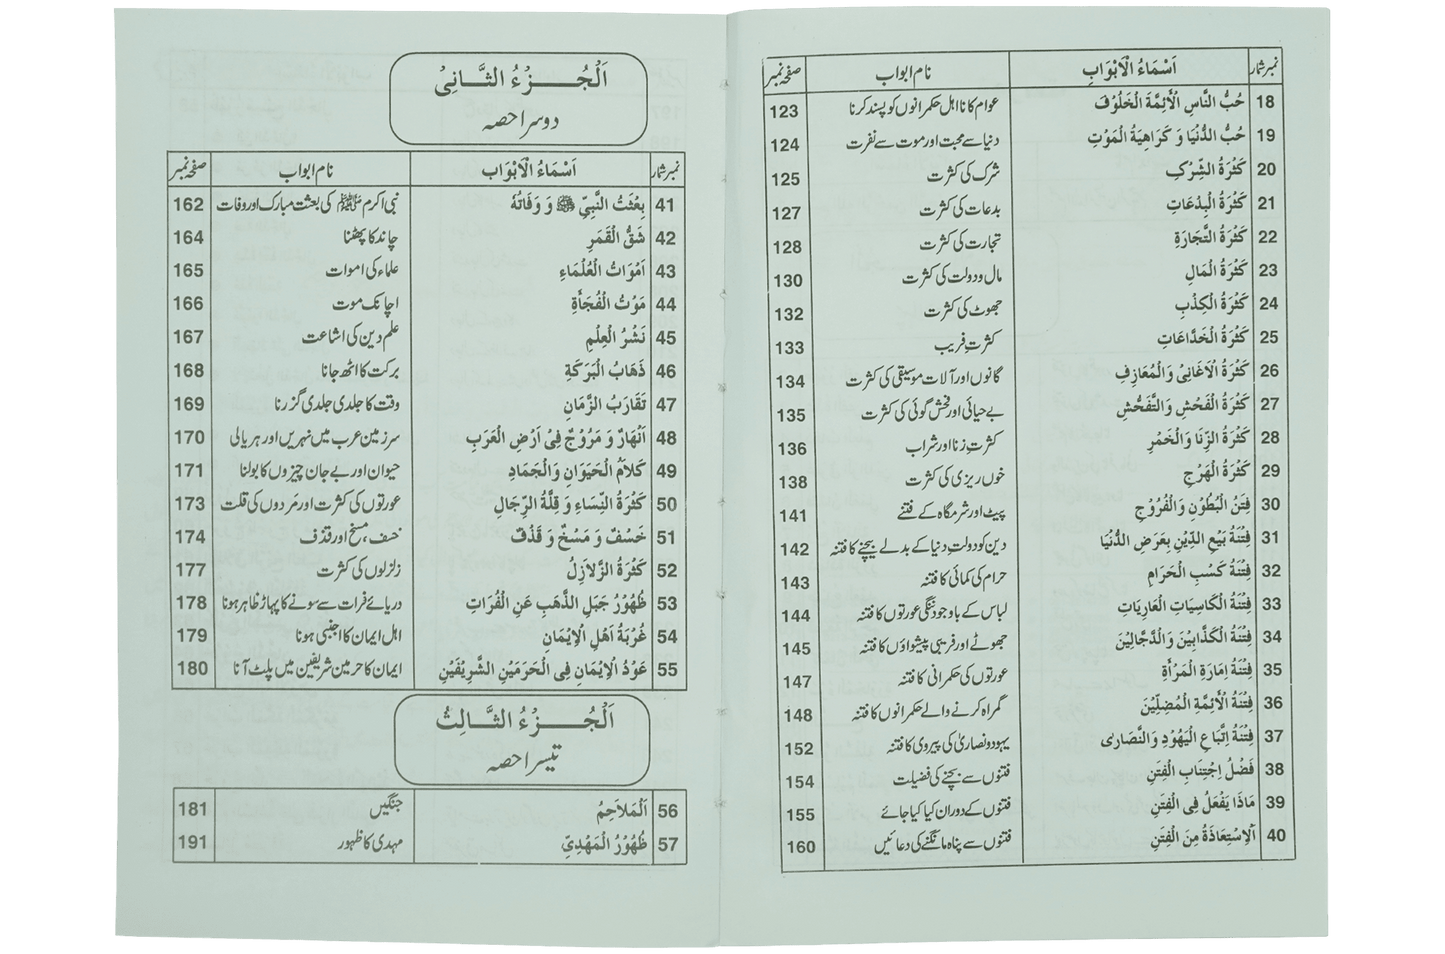 نمبر شمار اَسْمَاءُ الْاَبْوَابِ نام ابواب صفحہ نمبر
18 حُبُّ النَّاسِ الْأَئِمَّةَ الْخَلُوْفَ عوام کا نااہل حکمرانوں کو پسند کرنا 123
19 حُبُّ الدُّنْيَا وَ كَرَاهِيَةُ الْمَوْتِ دنیا سے محبت اور موت سے نفرت 124
20 كَثْرَةُ الشِّرْكِ شرک کی کثرت 125
21 كَثْرَةُ الْبِدْعَاتِ بدعات کی کثرت 127
22 كَثْرَةُ التِّجَارَةِ تجارت کی کثرت 128
23 كَثْرَةُ الْمَالِ مال و دولت کی کثرت 130
24 كَثْرَةُ الْكِذْبِ جھوٹ کی کثرت 132
25 كَثْرَةُ الْخَدَّاعَاتِ کثرتِ فریب 133
26 كَثْرَةُ الْاَغَانِىْ وَالْمُعَازِفِ گانوں اور آلات موسیقی کی کثرت 134
27 كَثْرَةُ الْفَحْشِ وَالتَّفَحُّشِ بے حیائی اور فحش گوئی کی کثرت 135
28 كَثْرَةُ الزِّنَا وَالْخَمْرِ کثرتِ زنا اور شراب 136
29 كَثْرَةُ الْهَرْجِ خوں ریزی کی کثرت 138
30 فِتَنُ الْبُطُوْنِ وَالْفُرُوْجِ پیٹ اور شرمگاہ کے فتنے 141
31 فِتْنَةُ بَيْعِ الدِّيْنِ بِعَرَضِ الدُّنْيَا دین کو دولتِ دنیا کے بدلے بیچنے کا فتنہ 142
32 فِتْنَةُ كَسْبِ الْحَرَامِ حرام کی کمائی کا فتنہ 143
33 فِتْنَةُ الْكَاسِيَاتِ الْعَارِيَاتِ لباس کے باوجود ننگی عورتوں کا فتنہ 144
34 فِتْنَةُ الْكَذَّابِيْنَ وَالدَّجَّالِيْنَ جھوٹے اور فریبی پیشواؤں کا فتنہ 145
35 فِتْنَةُ اِمَارَةِ الْمَرْأَةِ عورتوں کی حکمرانی کا فتنہ 147
36 فِتْنَةُ الْأَئِمَّةِ الْمُضِلِّيْنَ گمراہ کرنے والے حکمرانوں کا فتنہ 148
37 فِتْنَةُ اِتِّبَاعِ الْيَهُوْدِ وَالنَّصَارٰى یہود و نصاریٰ کی پیروی کا فتنہ 152
38 فَضْلُ اِجْتِنَابِ الْفِتَنِ فتنوں سے بچنے کی فضیلت 154
39 مَاذَا يَفْعَلُ فِى الْفِتَنِ فتنوں کے دوران کیا کیا جائے 155
40 اَلْاِسْتِعَاذَةُ مِنَ الْفِتَنِ فتنوں سے پناہ مانگنے کی دعائیں 160
اَلْجُزْءُ الثَّانِىْ
دوسرا حصہ
نمبر شمار اَسْمَاءُ الْاَبْوَابِ نام ابواب صفحہ نمبر
41 بِعْثَتُ النَّبِيِّ ﷺ وَ وَفَاتُهُ نبی اکرم ﷺ کی بعثت مبارک اور وفات 162
42 شَقُّ الْقَمَرِ چاند کا پھٹنا 164
43 اَمْوَاتُ الْعُلَمَاءِ علماء کی اموات 165
44 مَوْتُ الْفُجَأَةِ اچانک موت 166
45 نَشْرُ الْعِلْمِ علم دین کی اشاعت 167
46 ذَهَابُ الْبَرَكَةِ برکت کا اٹھ جانا 168
47 تَقَارَبُ الزَّمَانِ وقت کا جلدی جلدی گزرنا 169
48 اَنْهَارٌ وَ مَرُوْجٌ فِىْ اَرْضِ الْعَرَبِ سرزمین عرب میں نہریں اور ہریالی 170
49 كَلَامُ الْحَيَوَانِ وَالْجَمَادِ حیوان اور بے جان چیزوں کا بولنا 171
50 كَثْرَةُ النِّسَاءِ وَ قِلَّةُ الرِّجَالِ عورتوں کی کثرت اور مَردوں کی قلت 173
51 خَسْفٌ وَ مَسْخٌ وَ قَذْفٌ خسف، مسخ اور قذف 174
52 كَثْرَةُ الزَّلَازِلُ زلزلوں کی کثرت 177
53 ظُهُوْرُ جَبَلِ الذَّهَبِ عَنِ الْفُرَاتِ دریائے فرات سے سونے کا پہاڑ ظاہر ہونا 178
54 غُرْبَةُ اَهْلِ الْاِيْمَانِ اہل ایمان کا اجنبی ہونا 179
55 عَوْدُ الْاِيْمَانِ فِى الْحَرَمَيْنِ الشَّرِيْفَيْنِ ایمان کا حرمین شریفین میں پلٹ آنا 180
اَلْجُزْءُ الثَّالِثُ
تیسرا حصہ
56 اَلْمَلَاحِمُ جنگیں 181
57 ظُهُوْرُ الْمَهْدِيِّ مہدی کا ظہور 191